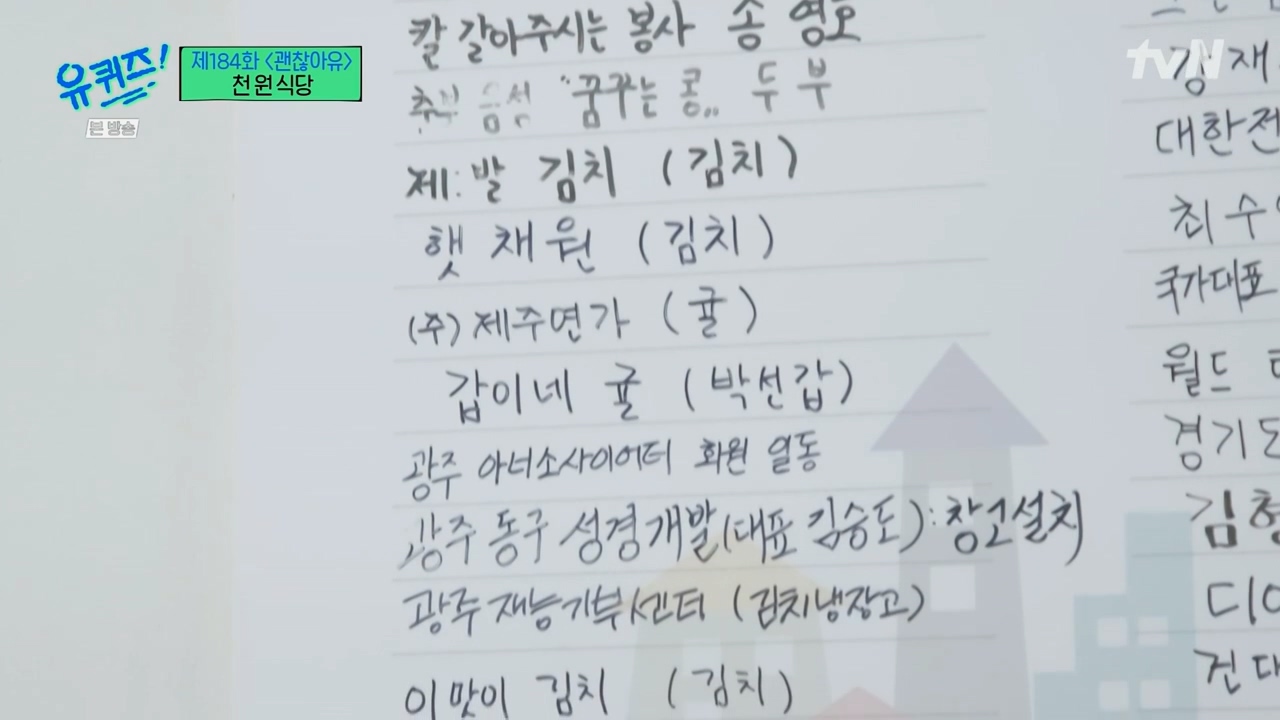 유퀴즈!
본 방송
제184화 <괜찮아유>
천원식당
tvN
칼 갈아주시는 봉사 송 영오
"꿈꾸는 콩,, 두부
제:발 김치 (김치)
햇 채원 (김치)
(주)제주연가 (귤)
갑이네 귤 (박선갑)
광주 아너소사이어티 회원 일동
광주 동구 성경개발(대표 김승도):창고설치
광주재능기부센터 (김치냉장고)
이맛이 김치 (김치)
강 재
대한전
최 수
국가대표
월드
경기도
김
디
건 대